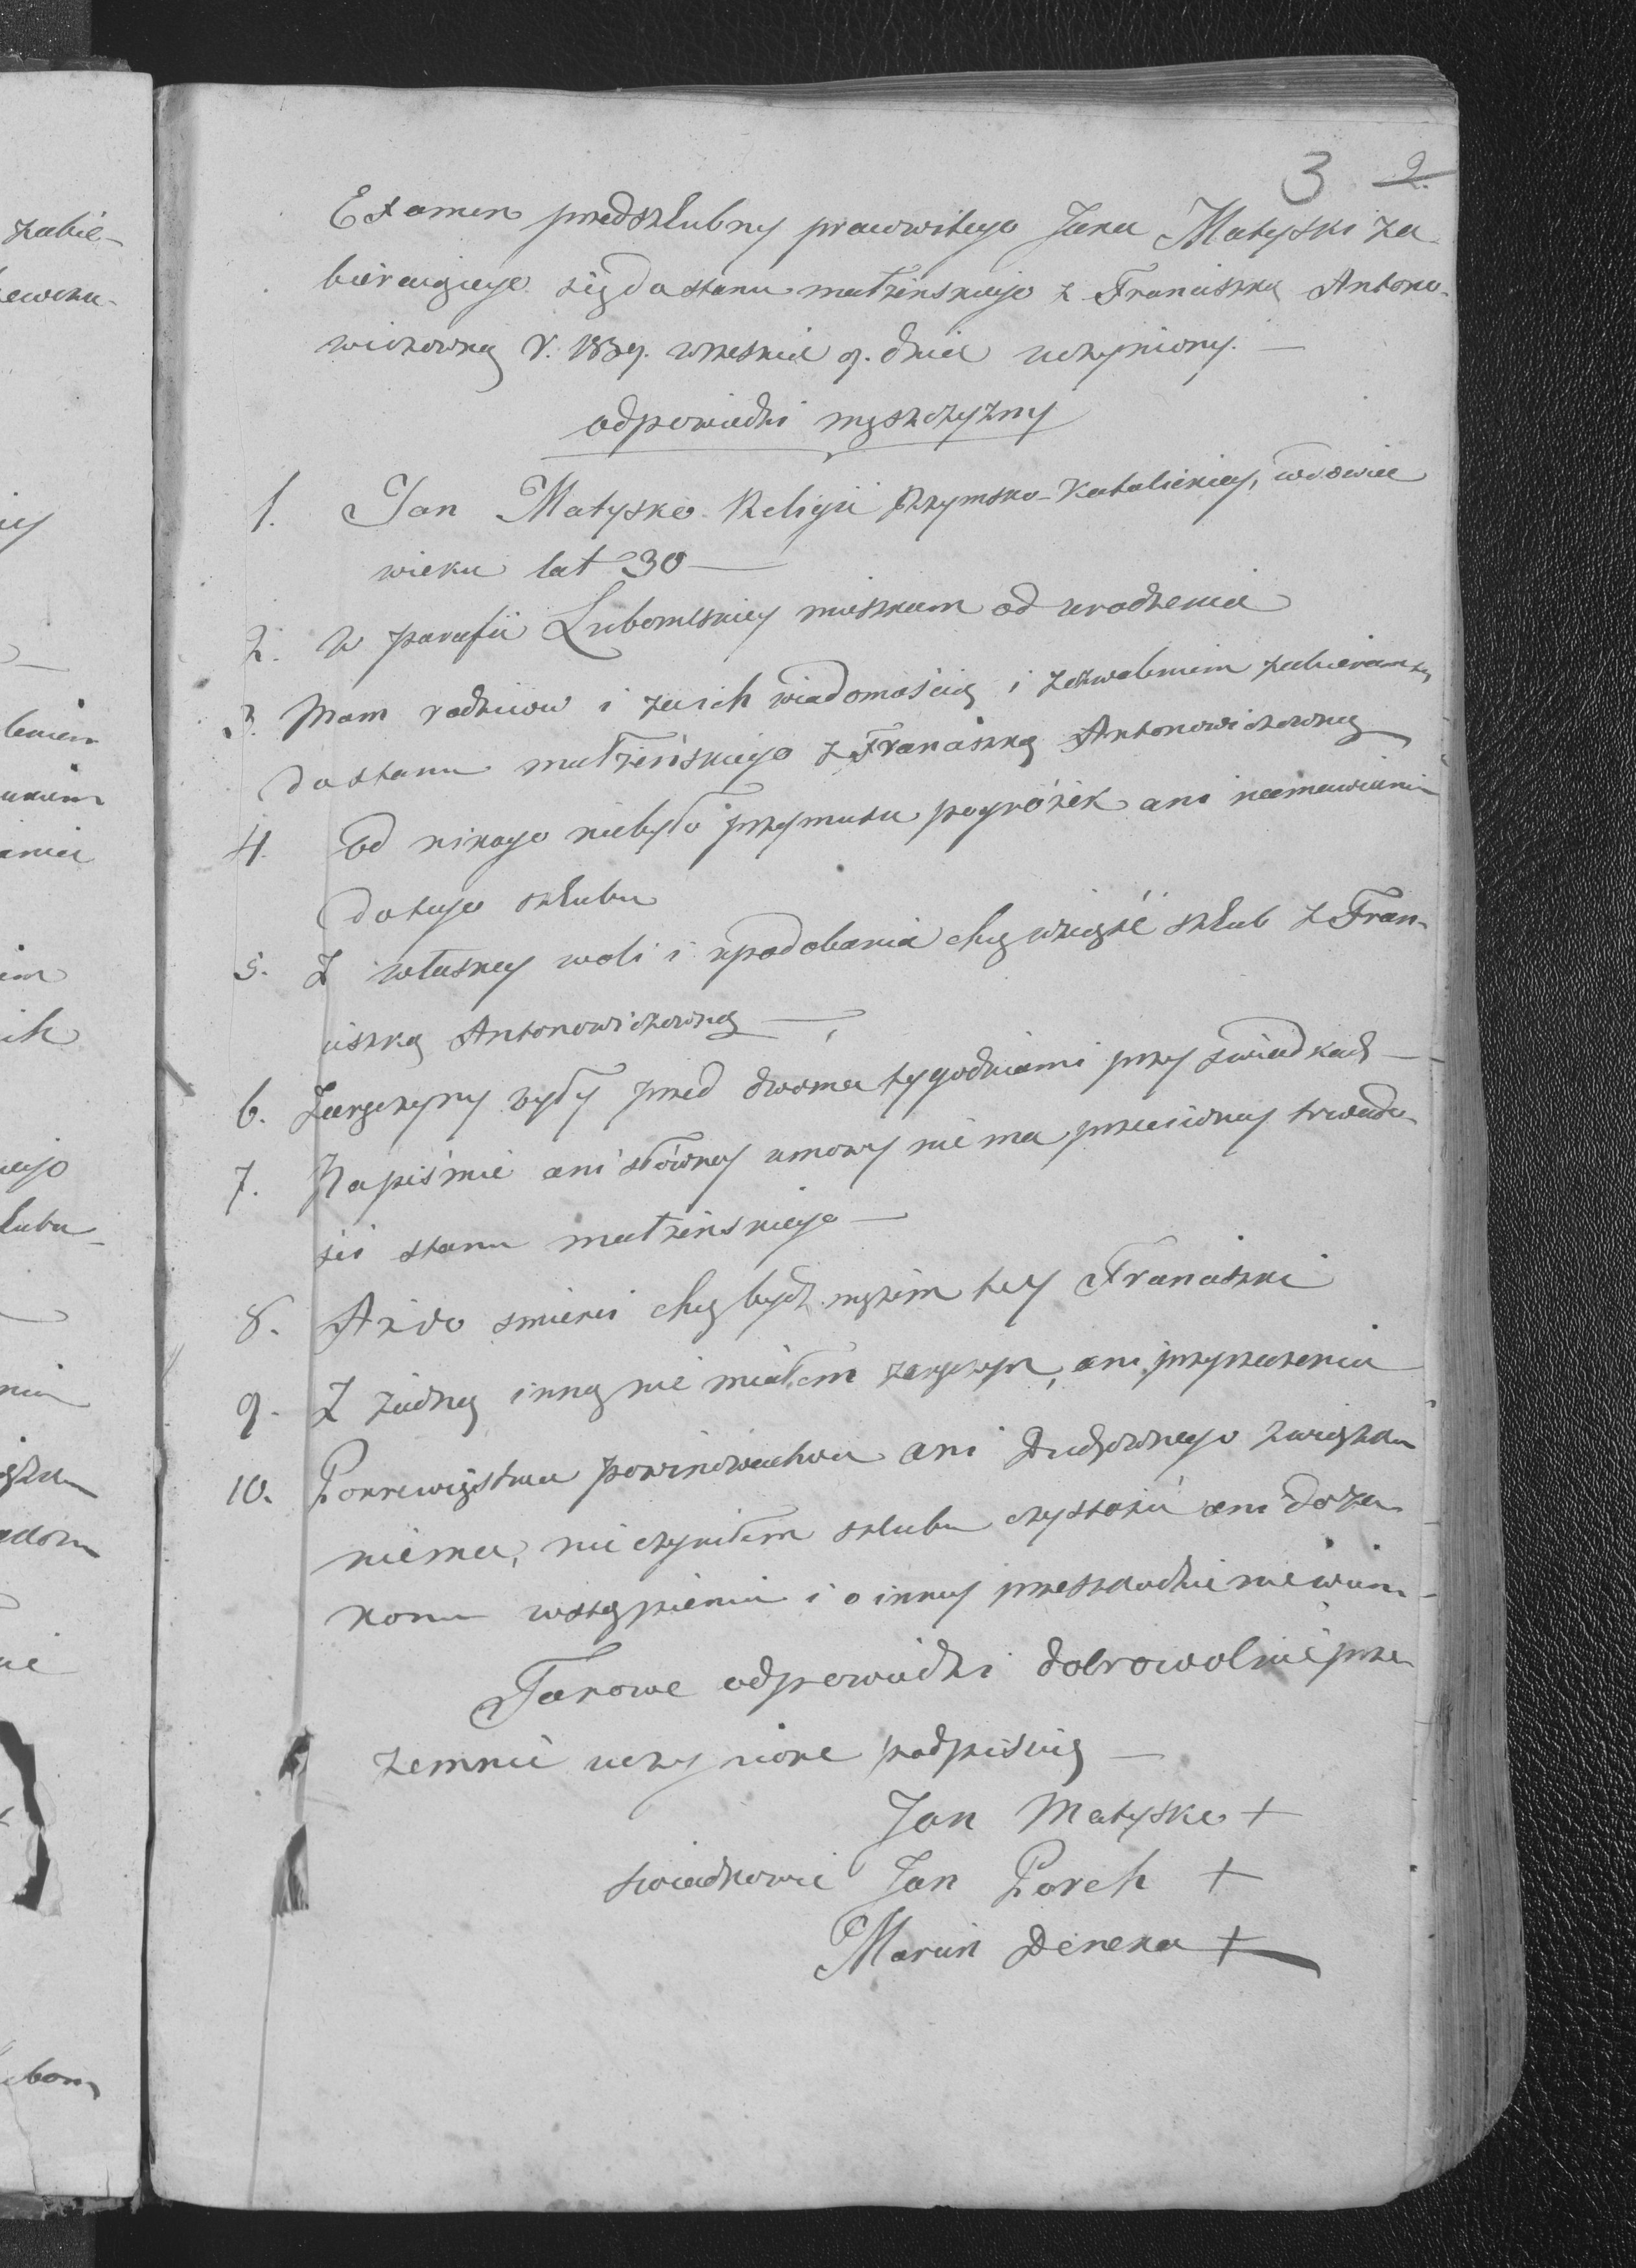 3 2.
Examen przedszlubny pracowitego Jana Matyski za-
bieraiącego się do stanu małżeńskiego z Franciszką Antono-
wiczowną r. 1839. września 9. dnia uczyniony. —
odpowiedzi mężczyzny
1. Jan Matyska Religii Rzymsko-Katolickiey, wdowiec
wieku lat 30 —
2. W parafii Lubomlskiey mieszkam od urodzenia
3. Mam rodziców i za ich wiadomością i zezwoleniem zabieram się
do stanu małżeńskiego z Franciszką Antonowiczowną
4. Od nikogo niebyło przymusu pogróżek ani namawiania
do tego szlubu
5. Z własney woli i upodobania chcę wziąść szlub z Fran-
ciszką Antonowiczowną —
6. Zaręczyny były przed dwoma tygodniami przy świadkach —
7. Na piśmie ani słówney umowy nie ma przeciwney trwało-
ści stanu małżeńskiego —
8. Aż do smierci chcę bydź mężem tey Franciszki
9. Z żadną inną nie miałem zaręczyn, ani przyrzeczenia
10. Pokrewięstwa powinowactwa ani Duchownego związku
niema, nie czyniłem szlubu czystości ani do za-
konu wstąpienia i o inney przeszkodzie niewiem —
Takowe odpowiedzi dobrowolnie prze-
zemnie uczynione podpisuię —
Jan Matyska +
świadkowie Jan Porch +
Marcin Deneka +